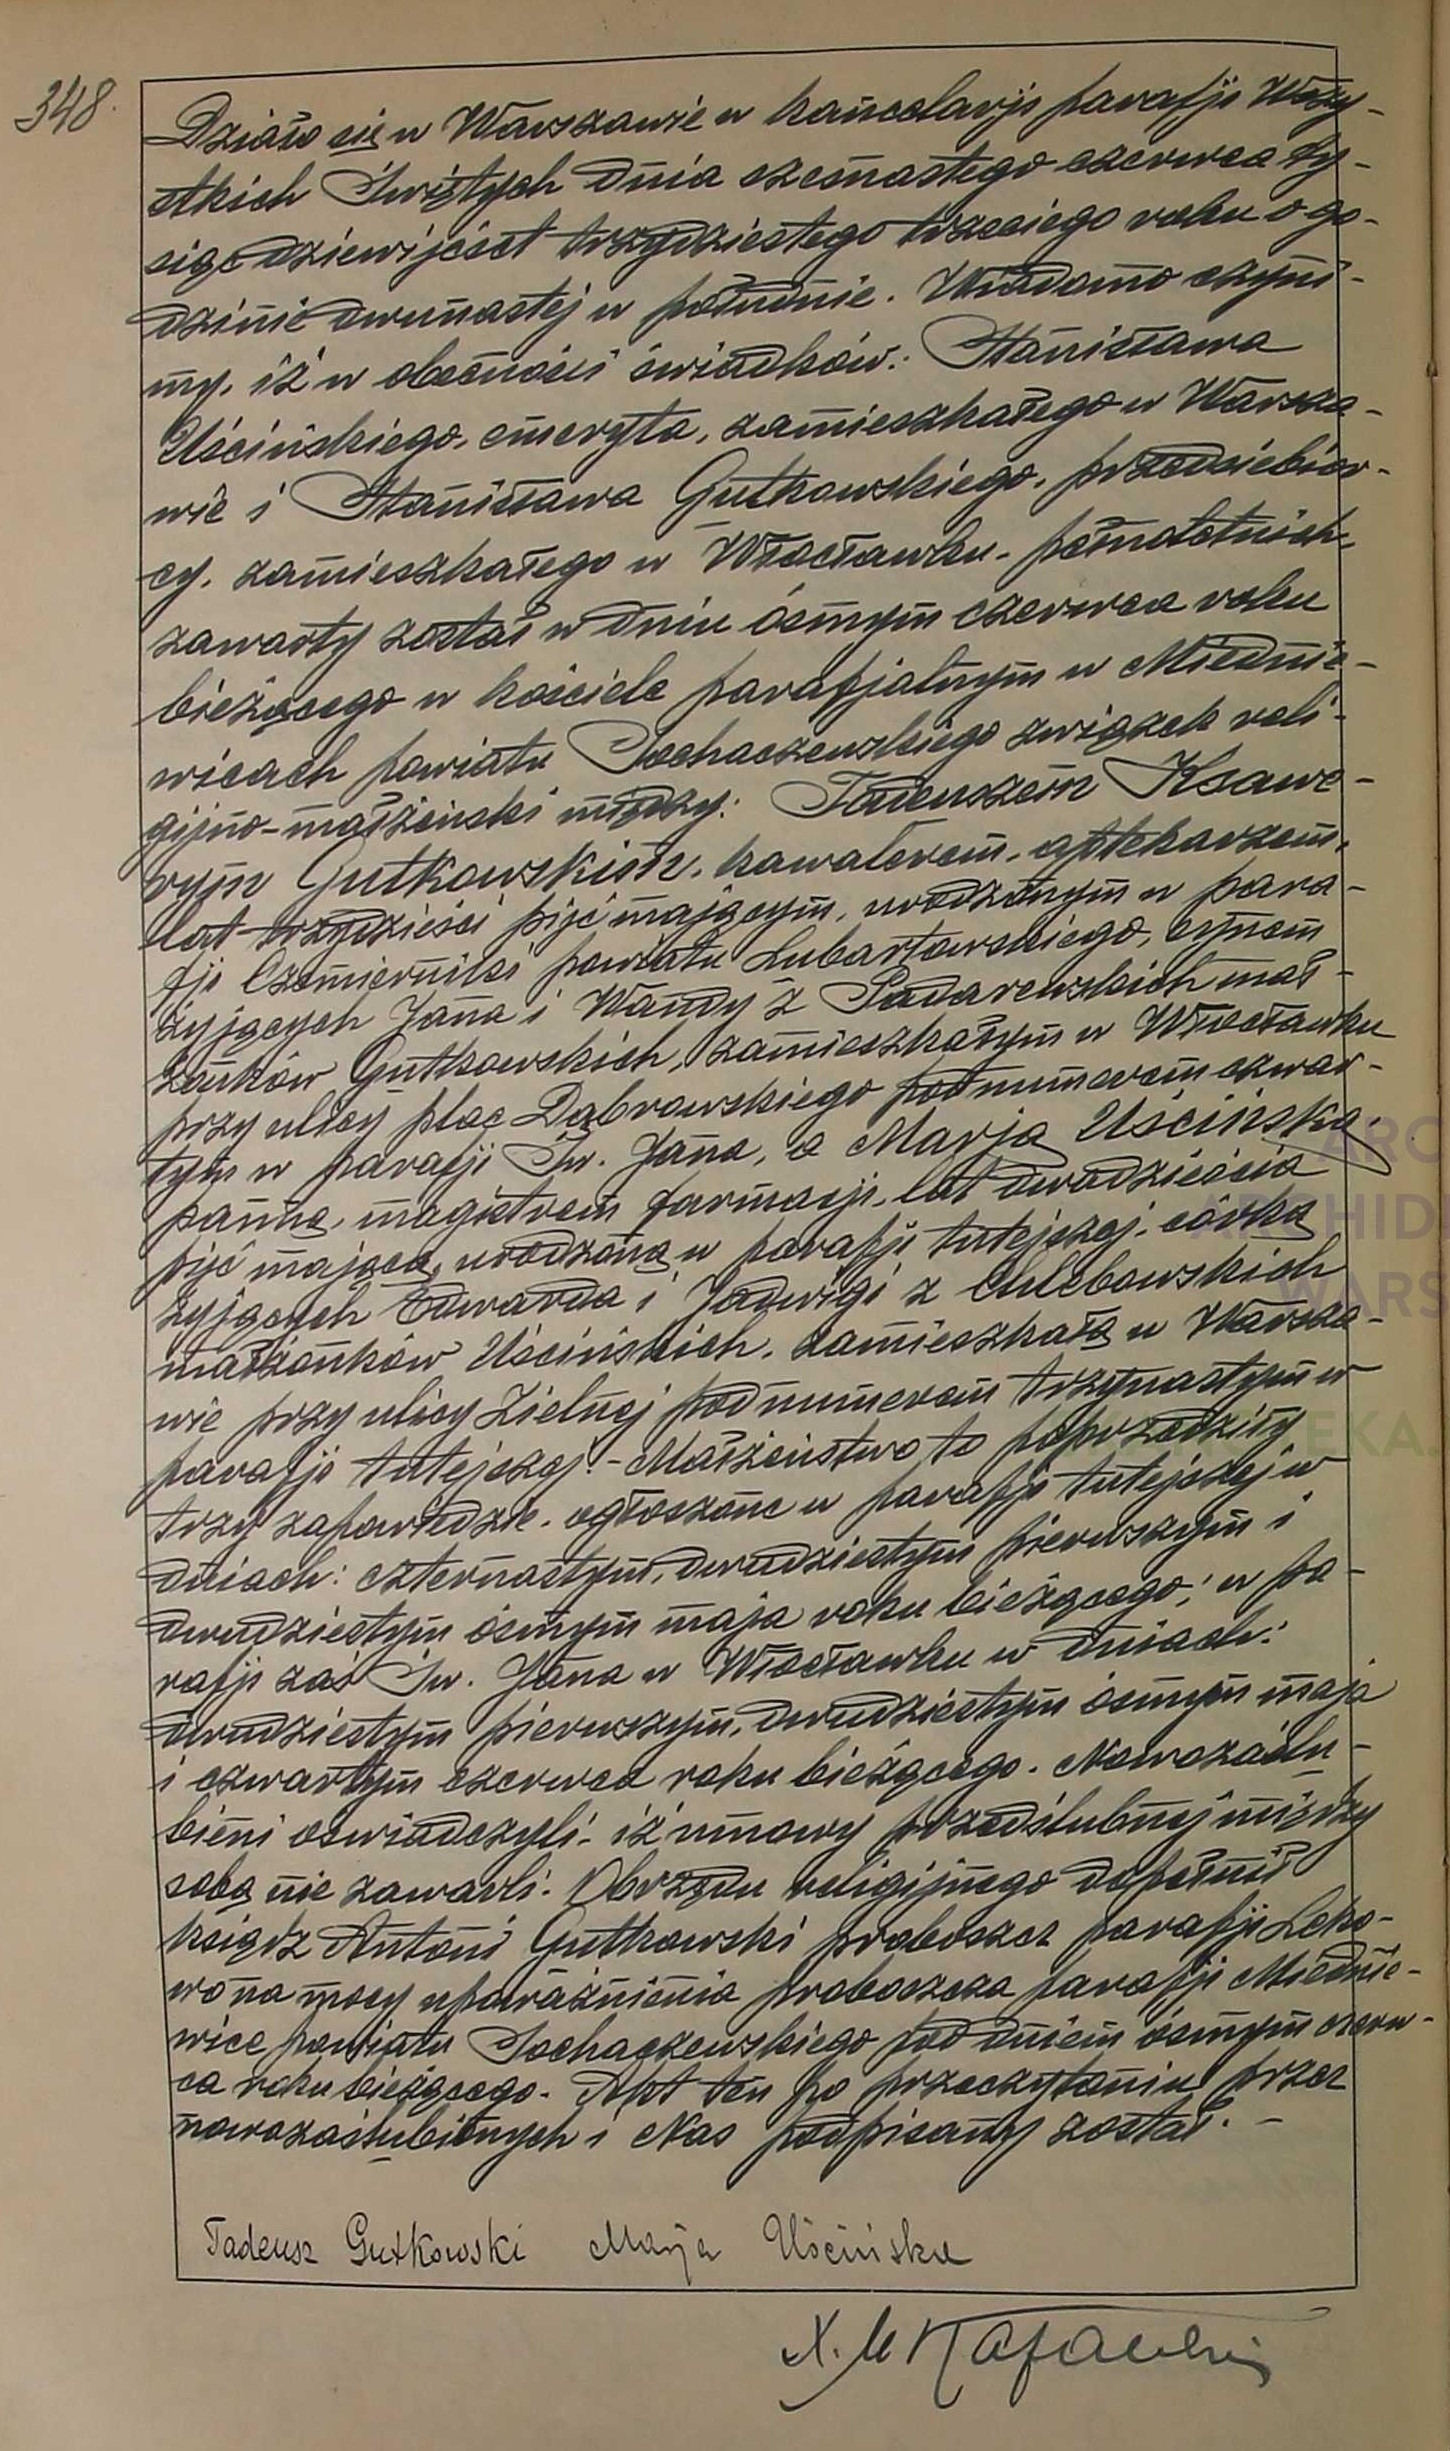 348.
Działo się w Warszawie w kancelarji parafji Wszy-
stkich Świętych dnia szesnastego czerwca ty-
siąc dziewięćset trzydziestego trzeciego roku o go-
dzinie dwunastej w południe. Wiadomo czyni-
my, iż w obecności świadków: Stanisława
Uścińskiego, emeryta, zamieszkałego w Warsza-
wie i Stanisława Gutkowskiego, przedsiębior-
cy, zamieszkałego w Włocławku - pełnoletnich,
zawarty został w dniu ósmym czerwca roku
bieżącego w kościele parafjalnym w Miednie-
wicach powiatu Sochaczewskiego związek reli-
gijno-małżeński między: Tadeuszem Ksawe-
rym Gutkowskim, kawalerem, aptekarzem,
lat trzydzieści pięć mającym, urodzonym w para-
fji Czemierniki powiatu Lubartowskiego, synem
żyjących Jana i Wandy z Padarewskich mał-
żonków Gutkowskich, zamieszkałym w Włocławku
przy ulicy plac Dąbrowskiego pod numerem czwar-
tym w parafji Św. Jana, a Marją Uścińską,
panną, magistrem farmacji, lat dwadzieścia
pięć mającą, urodzoną w parafji tutejszej, córką
żyjących Edwarda i Jadwigi z Chlebowskich
małżonków Uścińskich, zamieszkałą w Warsza-
wie przy ulicy Zielnej pod numerem trzynastym w
parafji tutejszej. - Małżeństwo to poprzedziły
trzy zapowiedzie, ogłoszone w parafji tutejszej w
dniach: czternastym, dwudziestym pierwszym i
dwudziestym ósmym maja roku bieżącego; w pa-
rafji zaś Św. Jana w Włocławku w dniach:
dwudziestym pierwszym, dwudziestym ósmym maja
i czwartym czerwca roku bieżącego. Nowozaślu-
bieni oświadczyli, iż umowy przedślubnej między
sobą nie zawarli. Obrzędu religijnego dopełnił
ksiądz Antoni Gutkowski proboszcz parafji Leko-
wo na mocy upoważnienia proboszcza parafji Miednie-
wice powiatu Sochaczewskiego pod dniem ósmym czerw-
ca roku bieżącego. Akt ten po przeczytaniu przez
nowozaślubionych i Nas podpisany został. -
Tadeusz Gutkowski Marja Uścińska